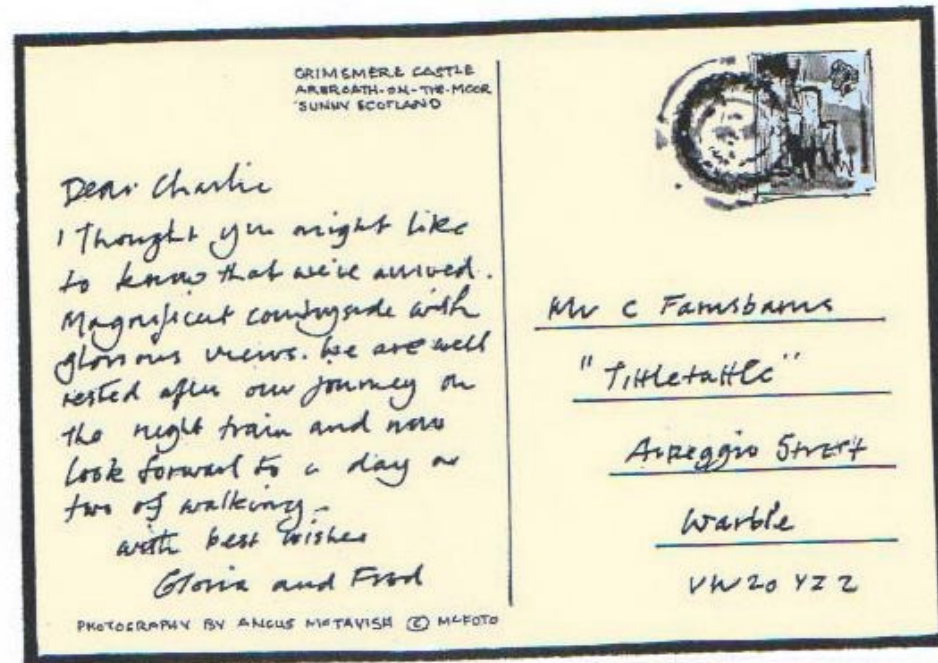 GRIMSMERE CASTLE
ARBROATH-ON-THE-MOOR
SUNNY SCOTLAND
Dear Charlie
I Thought you might like
to know that we've arrived.
Magnificent countryside with
glorious views. We are well
rested after our journey on
the night train and now
look forward to a day or
two of walking -
with best wishes
Gloria and Fred
PHOTOGRAPHY BY ANGUS McTAVISH © McFOTO
Mr C Farnsbarns
"Tittletattle"
Arpeggio Street
Warble
VW20 YZ2